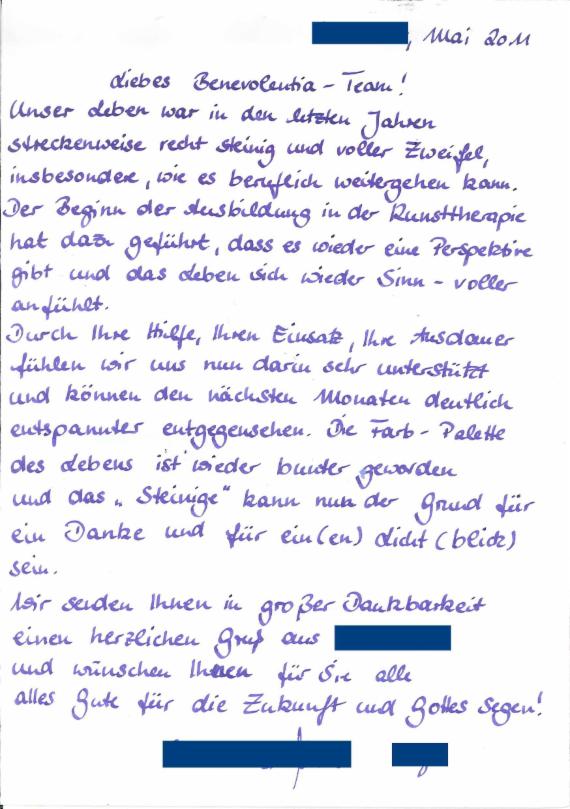 , Mai 2011
Liebes Benevolentia-Team!
Unser Leben war in den letzten Jahren
streckenweise recht steinig und voller Zweifel,
insbesondere, wie es beruflich weitergehen kann.
Der Beginn der Ausbildung in der Kunsttherapie
hat dazu geführt, dass es wieder eine Perspektive
gibt und das Leben sich wieder Sinn-voller
anfühlt.
Durch Ihre Hilfe, Ihren Einsatz, Ihre Ausdauer
fühlen wir uns nun darin sehr unterstützt
und können den nächsten Monaten deutlich
entspannter entgegensehen. Die Farb-Palette
des Lebens ist wieder bunter geworden
und das „Steinige“ kann nun der Grund für
ein Danke und für ein(en) Licht(blick)
sein.
Wir senden Ihnen in großer Dankbarkeit
einen herzlichen Gruß aus
und wünschen Ihnen für Sie alle
alles Gute für die Zukunft und Gottes Segen!